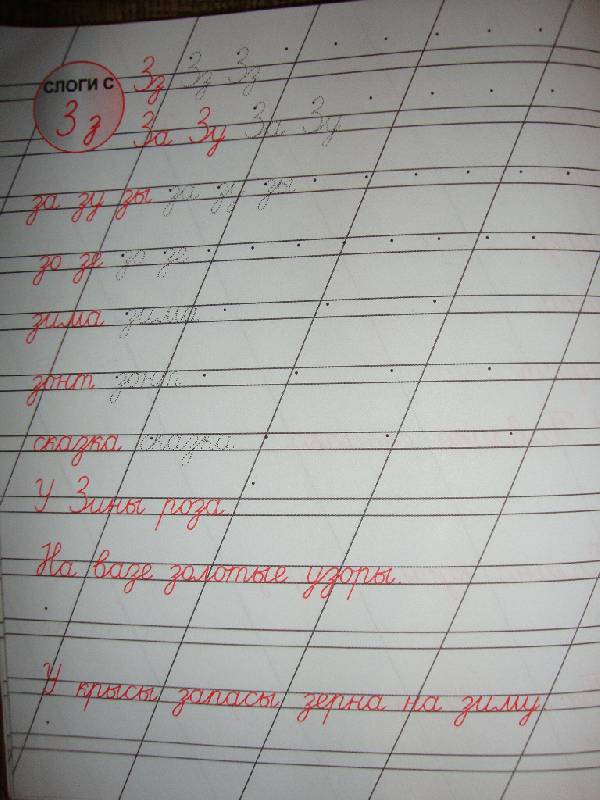 СЛОГИ С
З з
Зз Зз Зз
За Зу За Зу
за зу зы за зу зы
зо зе зо зе
зима зима
зонт зонт
сказка сказка
У Зины роза
На вазе золотые узоры.
У крысы запасы зерна на зиму.